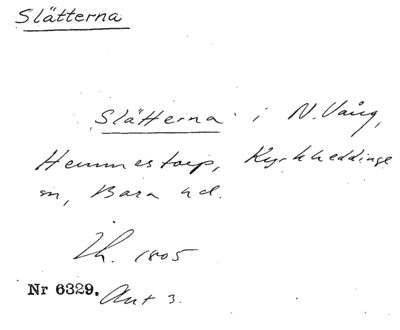 Slätterna
Slätterna i N. Vång,
Hemmestorp, Kyrkheddinge
sn, Bara hd.
Lh. 1805
Nr 6329. Akt 3.